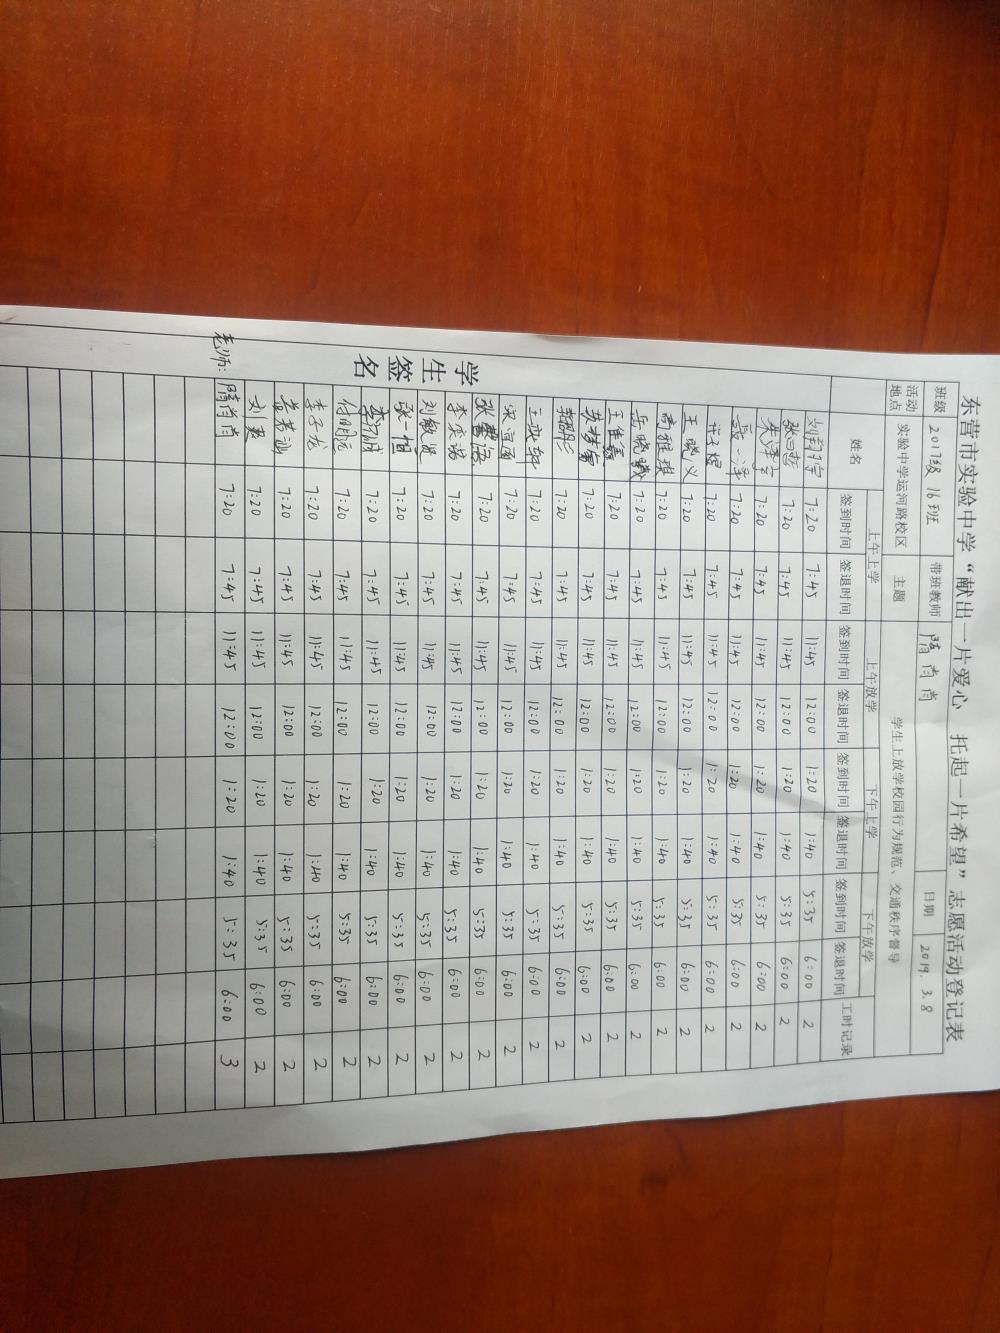 东营市实验中学“献出一片爱心 托起一片希望”志愿活动登记表
班级 2017级16班 带班教师 隋肖肖 日期 2019.3.8
活动地点 实验中学运河路校区 主题 学生上放学校园行为规范、交通秩序督导
姓名 上午上学 上午放学 下午上学 下午放学 工时记录
签到时间 签退时间 签到时间 签退时间 签到时间 签退时间 签到时间 签退时间
学生签名
刘翔宇 7:20 7:45 11:45 12:00 1:20 1:40 5:35 6:00 2
张四哲 7:20 7:45 11:45 12:00 1:20 1:40 5:35 6:00 2
朱泽宇 7:20 7:45 11:45 12:00 1:20 1:40 5:35 6:00 2
聂一泽 7:20 7:45 11:45 12:00 1:20 1:40 5:35 6:00 2
许子煜 7:20 7:45 11:45 12:00 1:20 1:40 5:35 6:00 2
王晓义 7:20 7:45 11:45 12:00 1:20 1:40 5:35 6:00 2
雅琪 7:20 7:45 11:45 12:00 1:20 1:40 5:35 6:00 2
岳晓曦 7:20 7:45 11:45 12:00 1:20 1:40 5:35 6:00 2
王佳 7:20 7:45 11:45 12:00 1:20 1:40 5:35 6:00 2
梦 7:20 7:45 11:45 12:00 1:20 1:40 5:35 6:00 2
7:20 7:45 11:45 12:00 1:20 1:40 5:35 6:00 2
王奕轩 7:20 7:45 11:45 12:00 1:20 1:40 5:35 6:00 2
宋 7:20 7:45 11:45 12:00 1:20 1:40 5:35 6:00 2
张馨 7:20 7:45 11:45 12:00 1:20 1:40 5:35 6:00 2
李奕诺 7:20 7:45 11:45 12:00 1:20 1:40 5:35 6:00 2
刘敏 7:20 7:45 11:45 12:00 1:20 1:40 5:35 6:00 2
张一恒 7:20 7:45 11:45 12:00 1:20 1:40 5:35 6:00 2
李 7:20 7:45 11:45 12:00 1:20 1:40 5:35 6:00 2
付明 7:20 7:45 11:45 12:00 1:20 1:40 5:35 6:00 2
李子龙 7:20 7:45 11:45 12:00 1:20 1:40 5:35 6:00 2
7:20 7:45 11:45 12:00 1:20 1:40 5:35 6:00 2
刘 7:20 7:45 11:45 12:00 1:20 1:40 5:35 6:00 2
老师: 隋肖肖 7:20 7:45 11:45 12:00 1:20 1:40 5:35 6:00 3